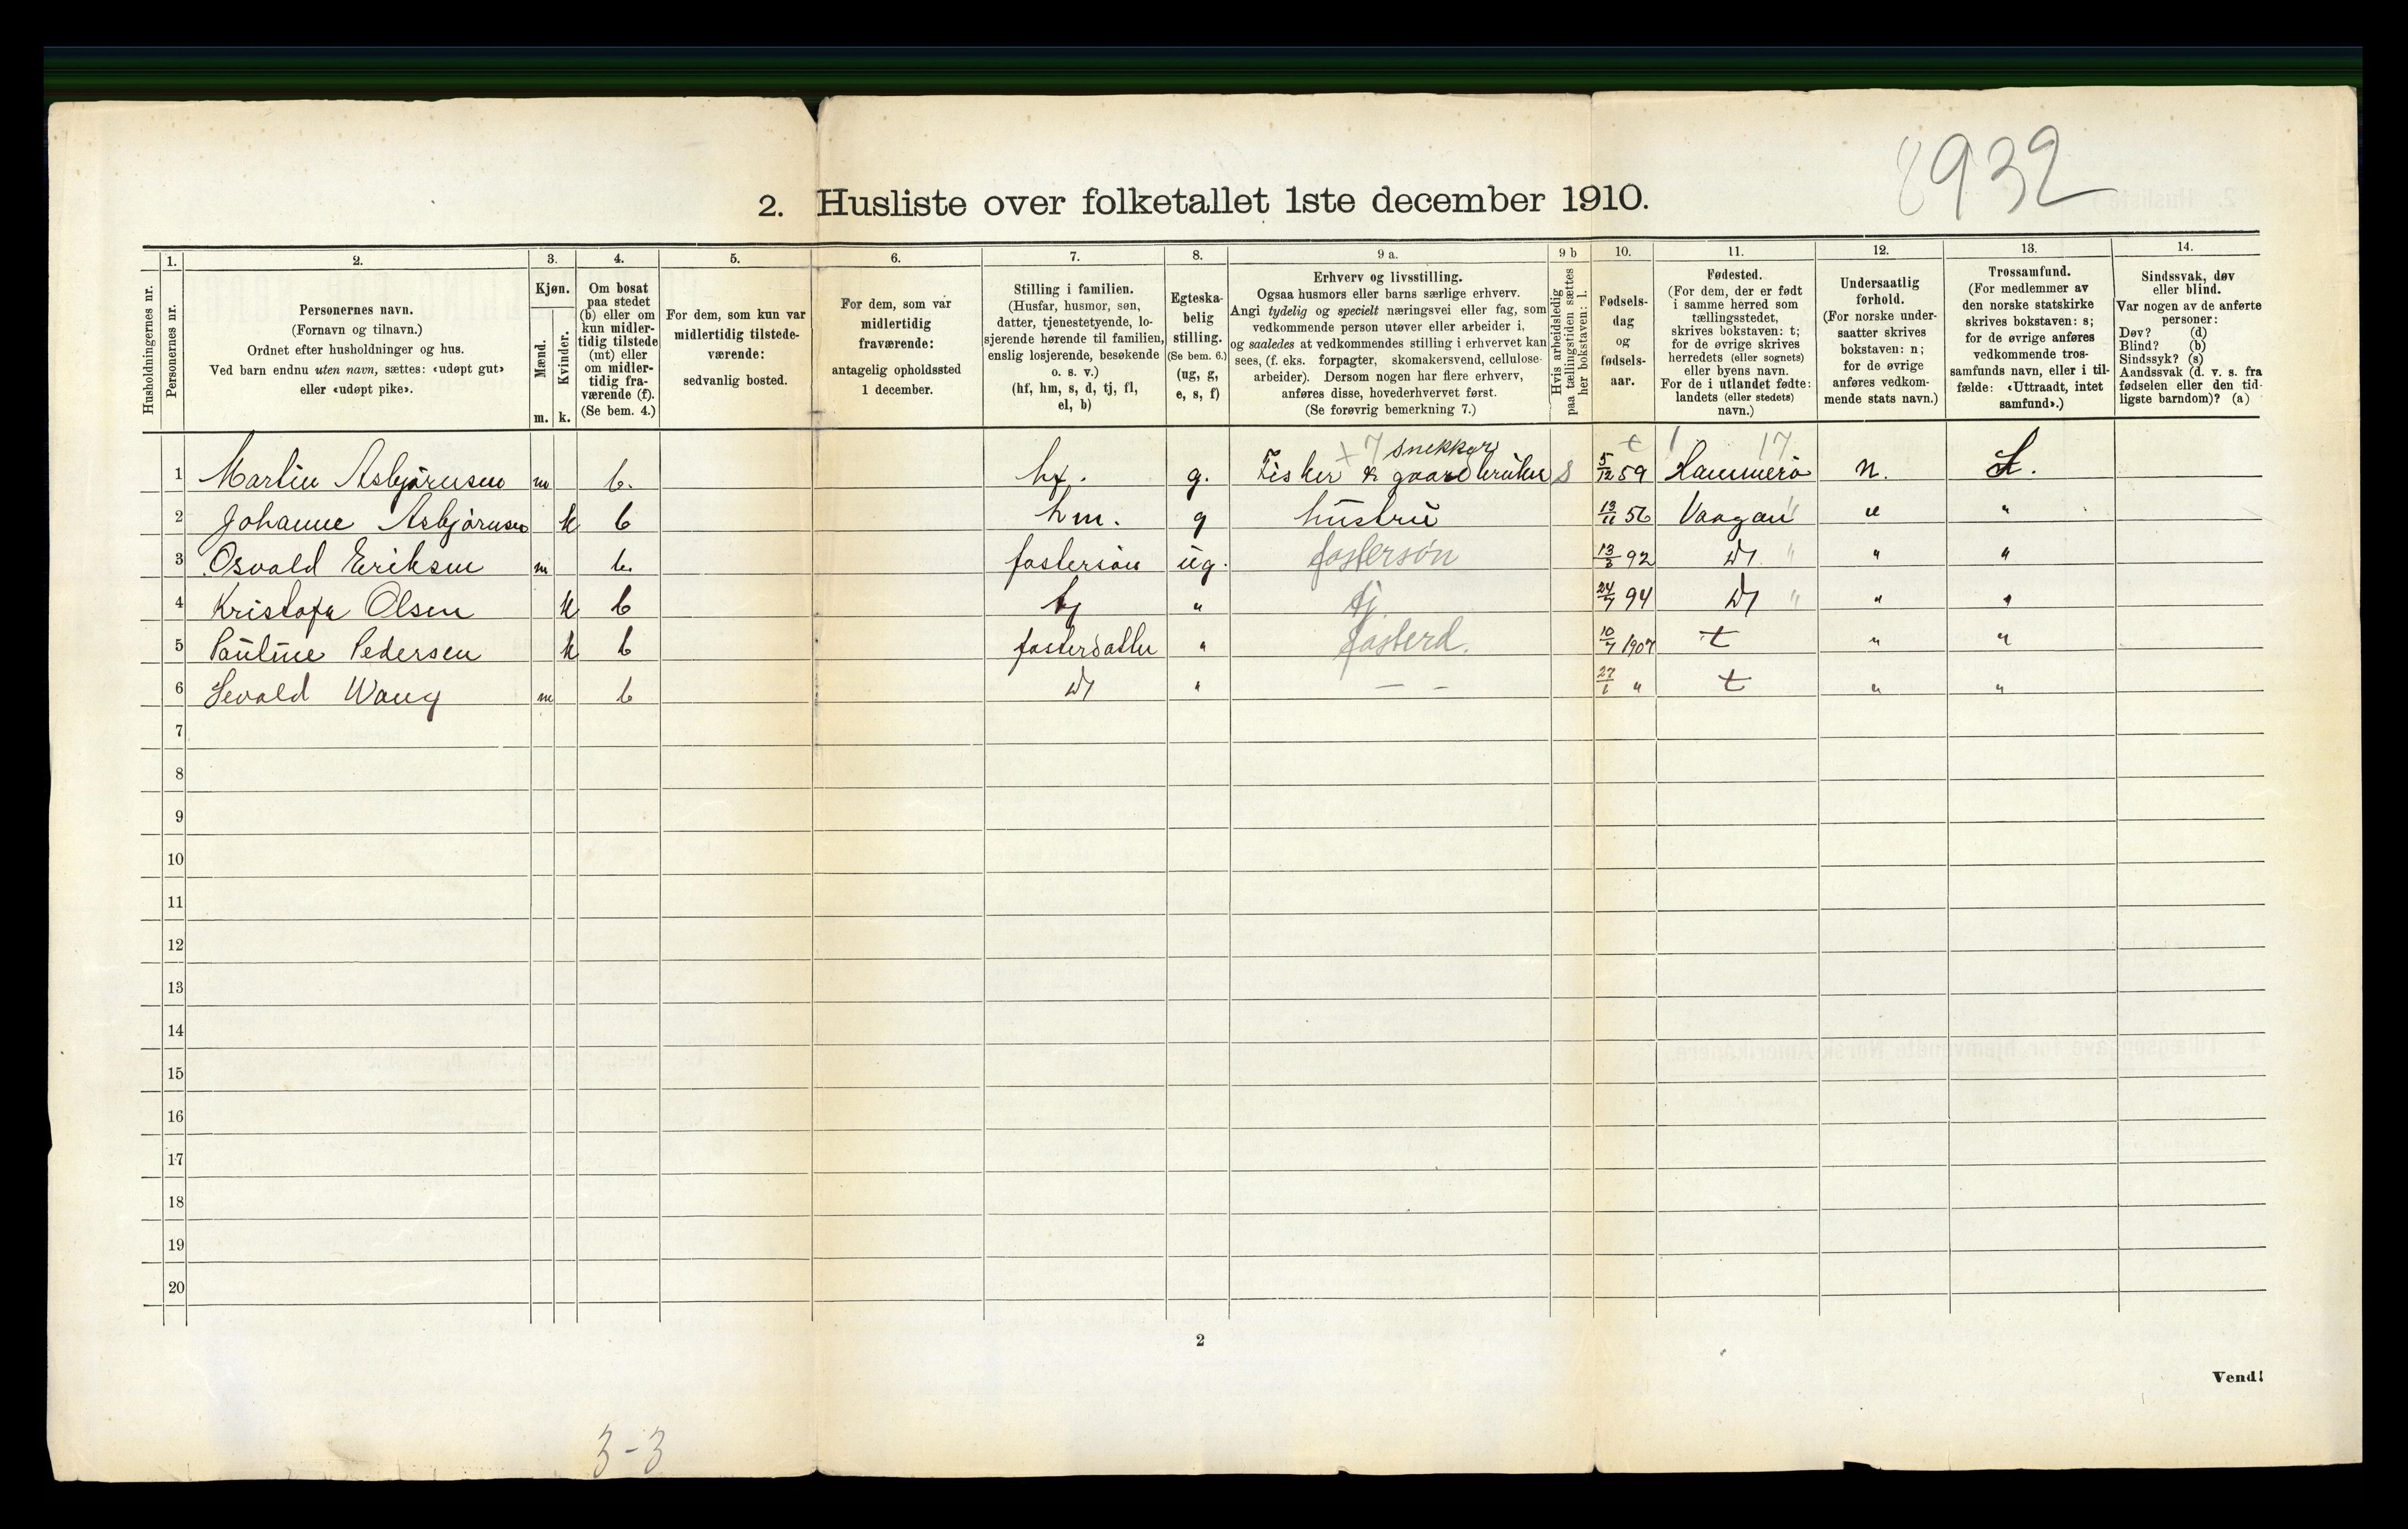 8932
2. Husliste over folketallet 1ste december 1910.
1. 2. 3. 4. 5. 6. 7. 8. 9 a. 9 b 10. 11. 12. 13. 14.
Husholdningernes nr.
Personernes nr.
Personernes navn.
(Fornavn og tilnavn.)
Ordnet efter husholdninger og hus.
Ved barn endnu uten navn, sættes: «udøpt gut»
eller «udøpt pike».
Kjøn.
Mænd.
Kvinder.
m. k.
Om bosat
paa stedet
(b) eller om
kun midler-
tidig tilstede
(mt) eller
om midler-
tidig fra-
værende (f).
(Se bem. 4.)
For dem, som kun var
midlertidig tilstede-
værende:
sedvanlig bosted.
For dem, som var
midlertidig
fraværende:
antagelig opholdssted
1 december.
Stilling i familien.
(Husfar, husmor, søn,
datter, tjenestetyende, lo-
sjerende hørende til familien,
enslig losjerende, besøkende
o. s. v.)
(hf, hm, s, d, tj, fl,
el, b)
Egteska-
belig
stilling.
(Se bem. 6.)
(ug, g,
e, s, f)
Erhverv og livsstilling.
Ogsaa husmors eller barns særlige erhverv.
Angi tydelig og specielt næringsvei eller fag, som
vedkommende person utøver eller arbeider i,
og saaledes at vedkommendes stilling i erhvervet kan
sees, (f. eks. forpagter, skomakersvend, cellulose-
arbeider). Dersom nogen har flere erhverv,
anføres disse, hovederhvervet først.
(Se forøvrig bemerkning 7.)
Hvis arbeidsledig
paa tællingstiden sættes
her bokstaven: l.
Fødsels-
dag
og
fødsels-
aar.
Fødested.
(For dem, der er født
i samme herred som
tællingsstedet,
skrives bokstaven: t;
for de øvrige skrives
herredets (eller sognets)
eller byens navn.
For de i utlandet fødte:
landets (eller stedets)
navn.)
Undersaatlig
forhold.
(For norske under-
saatter skrives
bokstaven: n;
for de øvrige
anføres vedkom-
mende stats navn.)
Trossamfund.
(For medlemmer av
den norske statskirke
skrives bokstaven: s;
for de øvrige anføres
vedkommende tros-
samfunds navn, eller i til-
fælde: «Uttraadt, intet
samfund».)
Sindssvak, døv
eller blind.
Var nogen av de anførte
personer:
Døv? (d)
Blind? (b)
Sindssyk? (s)
Aandssvak (d. v. s. fra
fødselen eller den tid-
ligste barndom)? (a)
7 snekker t 17
1 Martin Asbjørnsen m b. hf. g. Fisker & gaardbruker S 5/12 59 Hammerø n. S.
2 Johanne Asbjørnsen k b hm. g hustru 13/11 56 Vaagan " "
3 Osvald Eriksen m b. fostersøn ug. fostersøn 92 " "
4 Olsen k b tj " tj. 24/7 94 " "
5 Pauline Pedersen k b fosterdatter " fosterd. 10/7 1907 t " "
6 Sevald Wang m b " — — 27/1 " t " "
7
8
9
10
11
12
13
14
15
16
17
18
19
20
2
Vend!
3-3